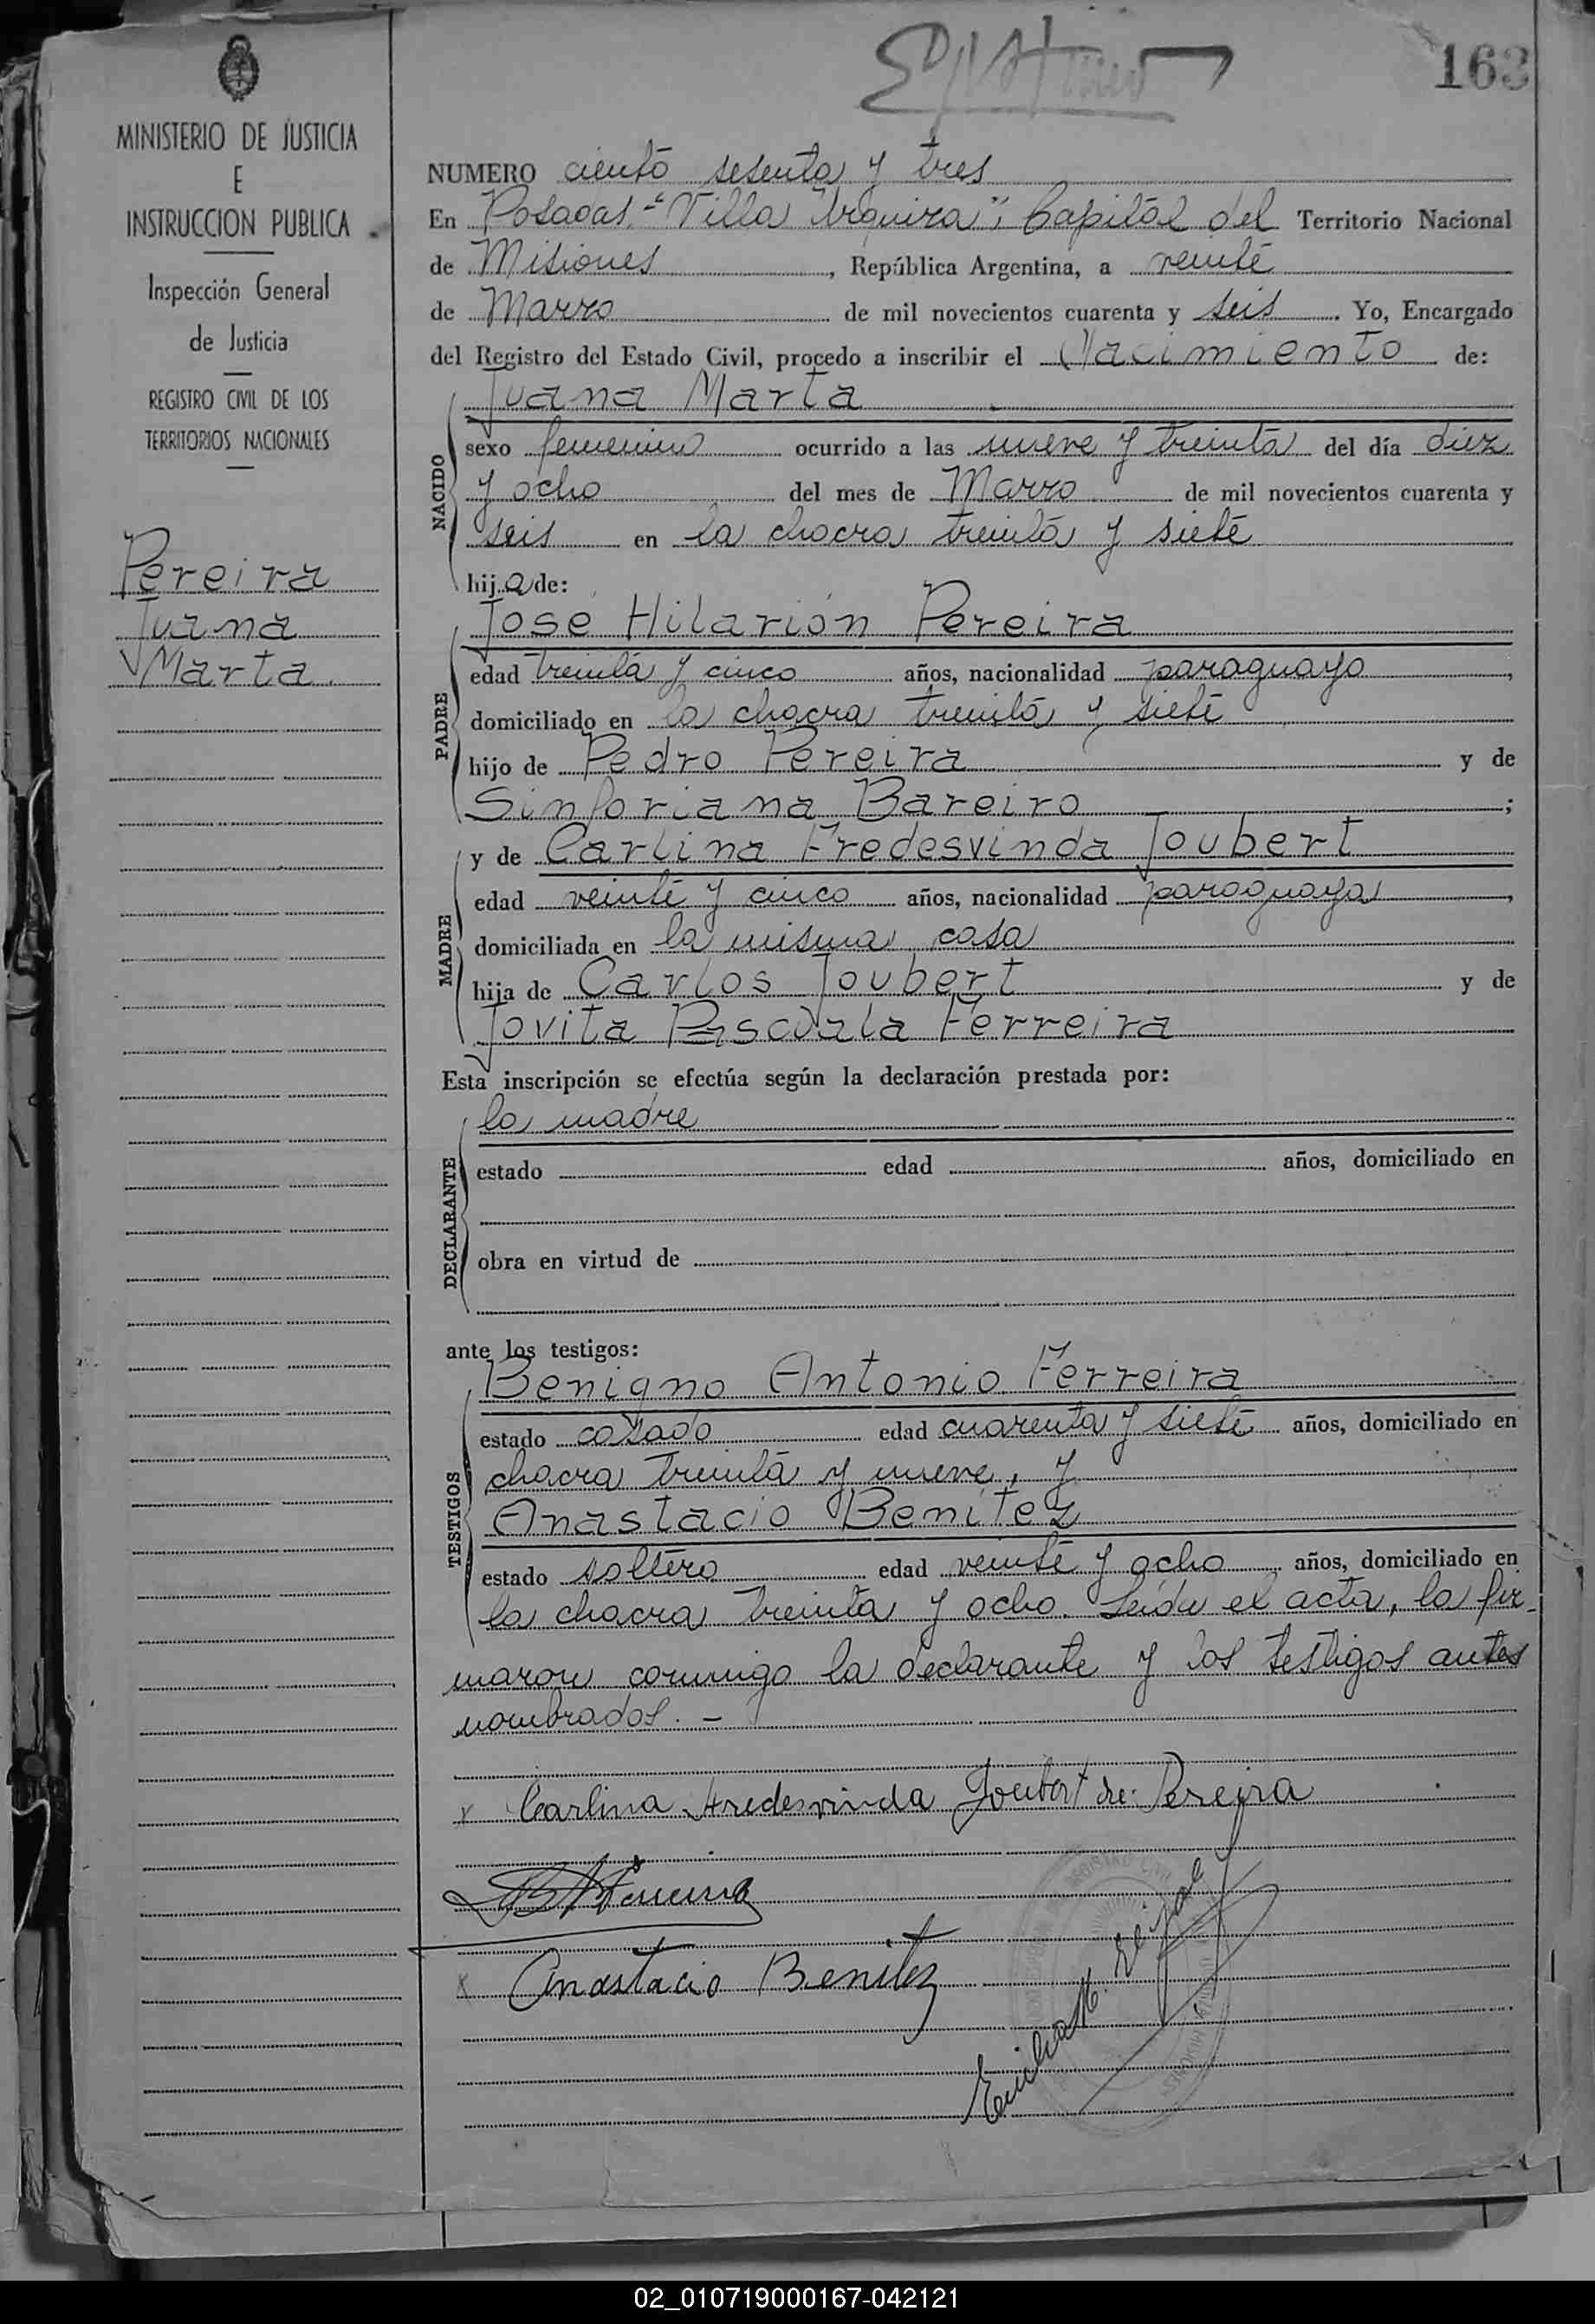 163
MINISTERIO DE JUSTICIA
E
INSTRUCCION PUBLICA
Inspección General
de Justicia
REGISTRO CIVIL DE LOS
TERRITORIOS NACIONALES
Pereira
Juana
Marta.
NUMERO ciento sesenta y tres
En Posadas.-"Villa Urquiza", Capital del Territorio Nacional
de Misiones, República Argentina, a veinte
de Marzo de mil novecientos cuarenta y seis. Yo, Encargado
del Registro del Estado Civil, procedo a inscribir el Nacimiento de:
NACIDO
Juana Marta
sexo femenino ocurrido a las nueve y treinta del día diez
y ocho del mes de Marzo de mil novecientos cuarenta y
seis en la chacra treinta y siete
hija de:
PADRE
José Hilarión Pereira
edad treinta y cinco años, nacionalidad paraguayo,
domiciliado en la chacra treinta y siete
hijo de Pedro Pereira y de
Sinforiana Bareiro;
MADRE
y de Carlina Fredesvinda Joubert
edad veinte y cinco años, nacionalidad paraguaya,
domiciliada en la misma casa
hija de Carlos Joubert y de
Jovita Pascuala Ferreira
Esta inscripción se efectúa según la declaración prestada por:
DECLARANTE
la madre
estado edad años, domiciliado en
obra en virtud de
ante los testigos:
TESTIGOS
Benigno Antonio Ferreira
estado casado edad cuarenta y siete años, domiciliado en
chacra treinta y nueve, y
Anastacio Benítez
estado soltero edad veinte y ocho años, domiciliado en
la chacra treinta y ocho. Leída el acta, la fir-
maron conmigo la declarante y los testigos antes
nombrados. -
x Carlina Fredesvinda Joubert de Pereira
x Anastacio Benitez
REGISTRO CIVIL
02_010719000167-042121